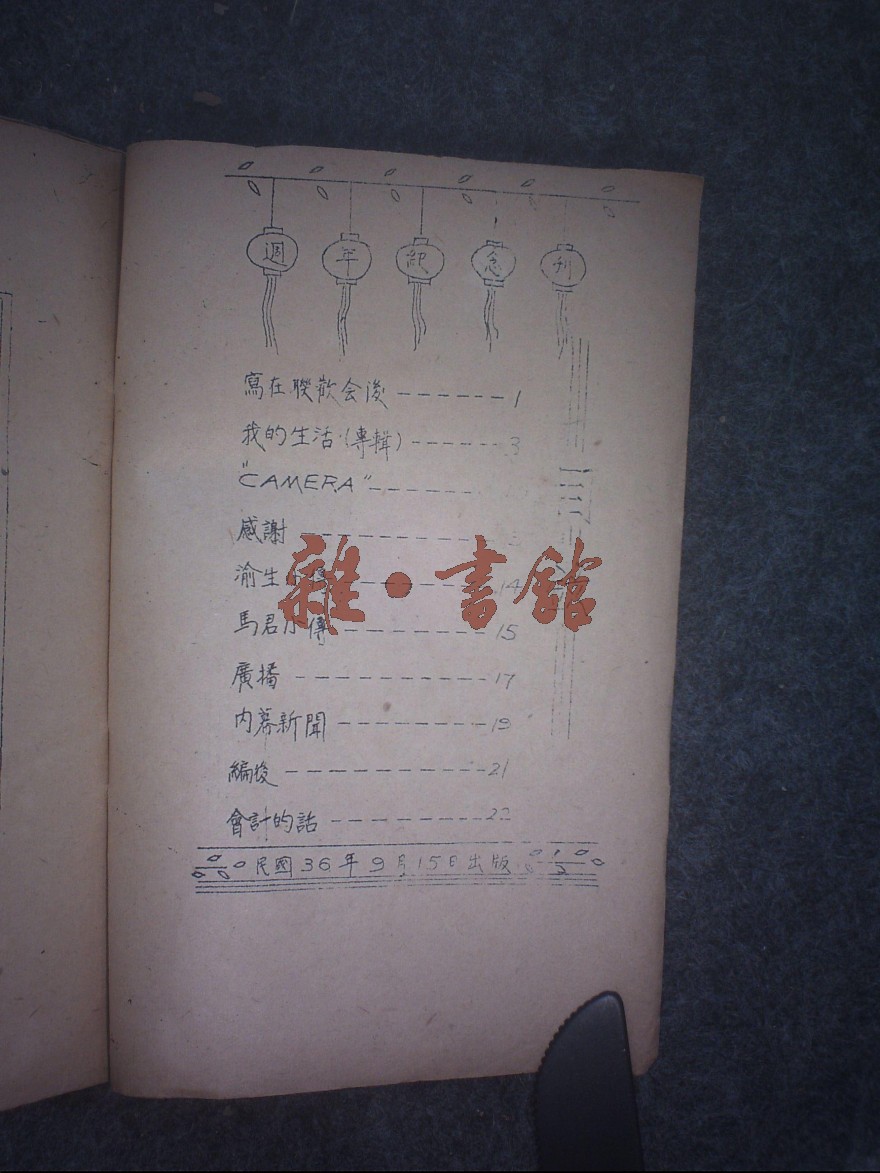 週年紀念刊
寫在聯歡会後------1
我的生活(專輯)------3
"CAMERA"------
感謝------
渝生小傳------14
馬君小傳------15
廣播------17
內幕新聞------19
編後------21
會計的話------22
民國36年9月15日出版
雜·書館